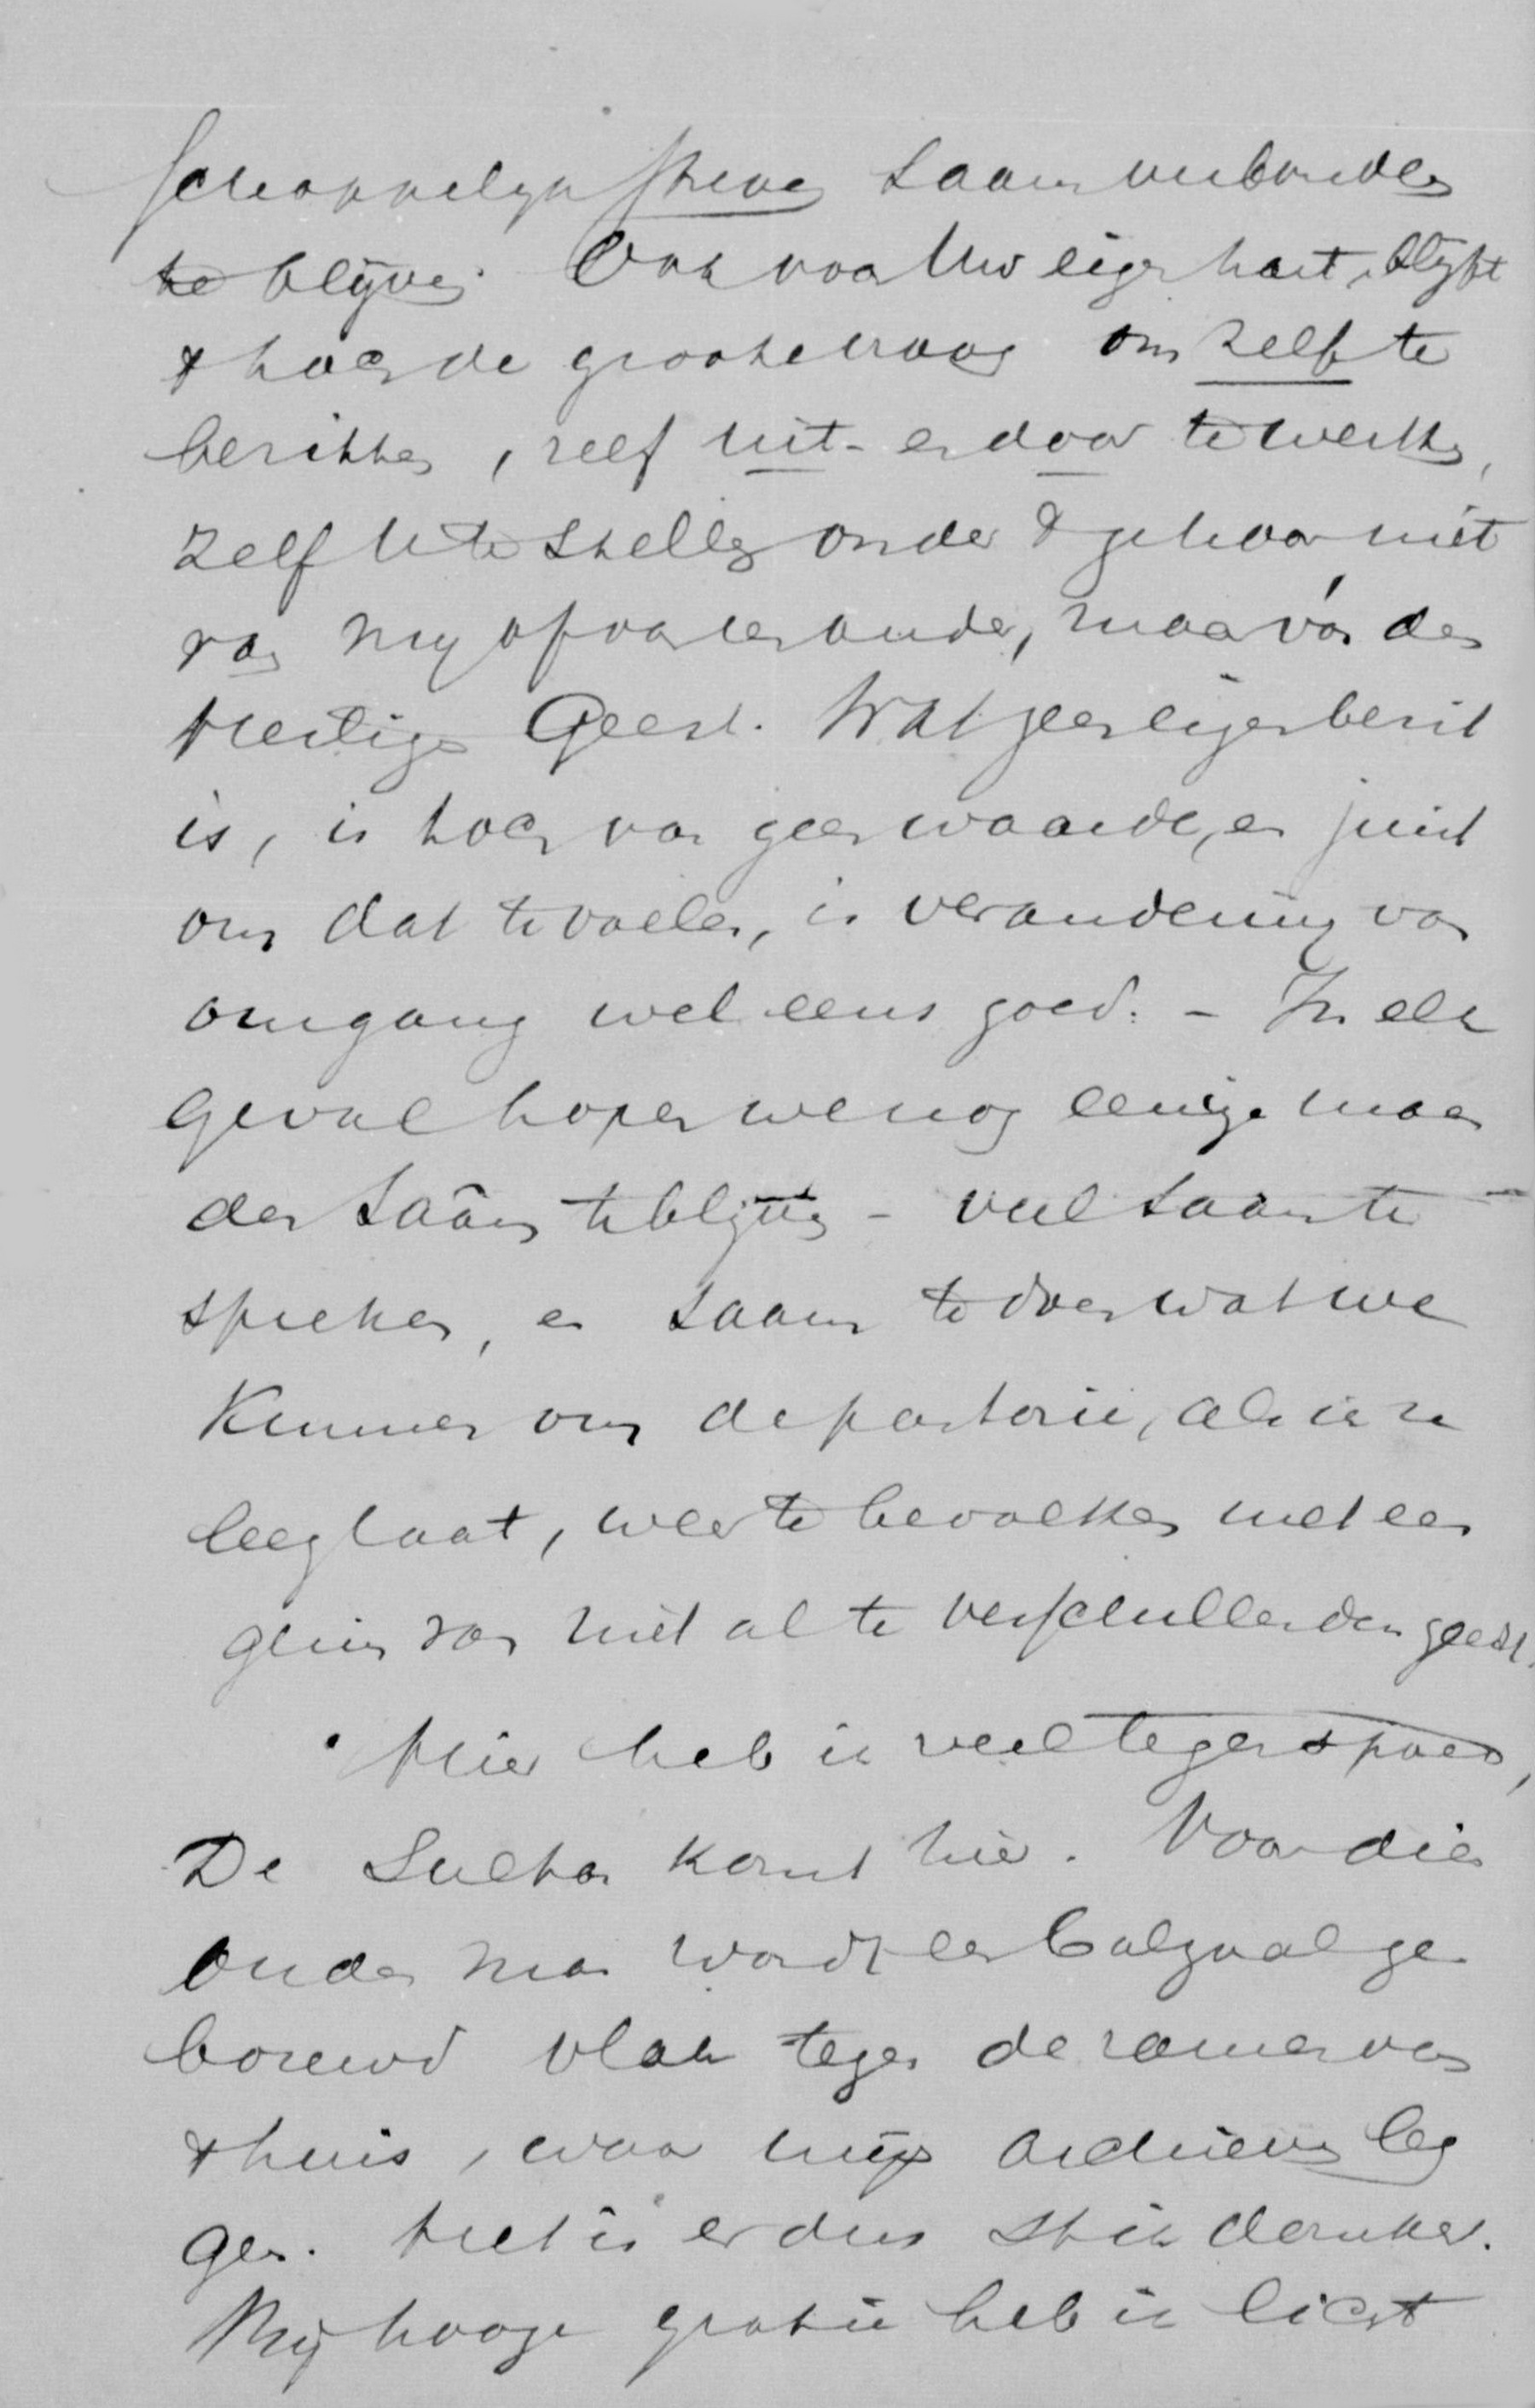 schappelyk streng saam verbonden
te blijven. Ook voor Uw eigen hart, blijft
't toch de groote vraag om zelf te
berikken, zelf uit- en door te werken,
Zelf U te stellen onder 't gehoor niet
van mij of van een ander, maar ván den
Heiligen Geest. Wat geen eigen bezit
is, is toch van geen waarde, en juist
om dat te voelen, is verandering van
omgang wel eens goed. – In elk
geval hopen we nog eenige maan
den saâm te blijven – veel saam te
spreken, en saam te doen wat we
Kunnen om de pastorie, als ik ze
leeg laat, weer te bevolken met een
gezin van niet al te verschillenden geest.
Hier heb ik veel tegenspoed,
De Sultan komt hier. Voor dien
ouden man wordt een balzaal ge
bouwd vlak tegen de ramen van
't huis, waar mijn archieven leg
gen. Het is er dus stik donker.
Mij hooge gratie heb ik licht